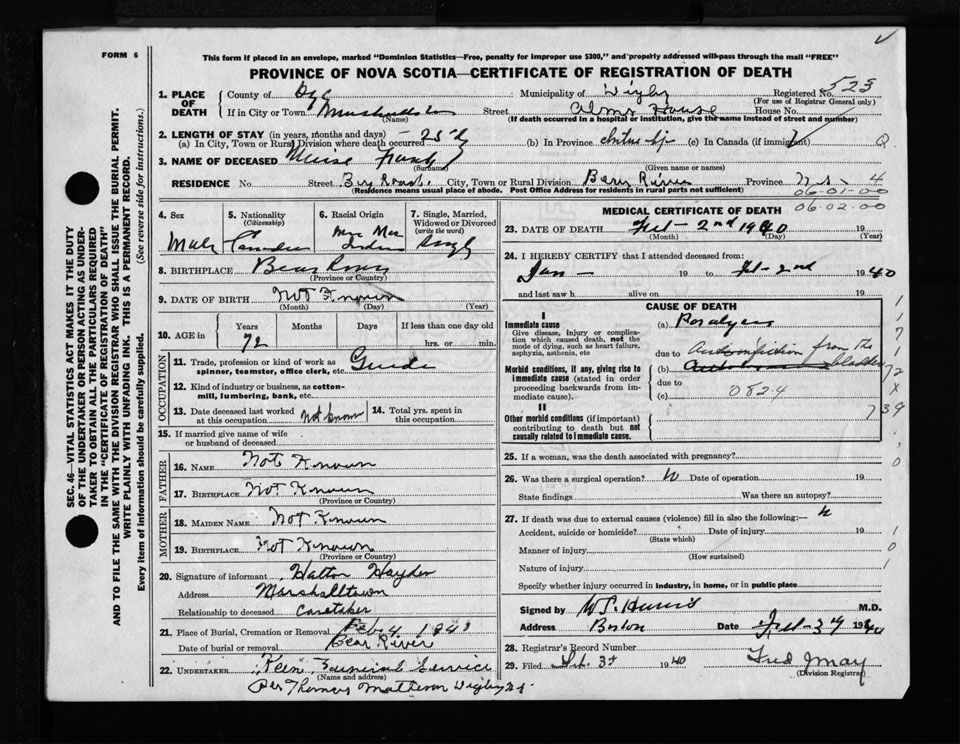 FORM 6
This form if placed in an envelope, marked "Dominion Statistics—Free, penalty for improper use $300," and properly addressed will pass through the mail "FREE"
PROVINCE OF NOVA SCOTIA—CERTIFICATE OF REGISTRATION OF DEATH
523
1. PLACE OF DEATH
County of
Municipality of Digby Registered No.
(For use of Registrar General only)
If in City or Town Street Alms House House No.
(Name) (If death occurred in a hospital or institution, give the name instead of street and number)
2. LENGTH OF STAY (in years, months and days)
(a) In City, Town or Rural Division where death occurred (b) In Province (c) In Canada (if immigrant)
3. NAME OF DECEASED Frank
(Surname) (Given name or names)
RESIDENCE No. Street City, Town or Rural Division Bear River Province N.S. 4
(Residence means usual place of abode. Post Office Address for residents in rural parts not sufficient)
06-01-00
06-02-00
4. Sex 5. Nationality (Citizenship) 6. Racial Origin 7. Single, Married, Widowed or Divorced (write the word)
Male Mic Mac Indian Single
8. BIRTHPLACE Bear River
(Province or Country)
9. DATE OF BIRTH Not Known
(Month) (Day) (Year)
10. AGE in Years Months Days If less than one day old
72 hrs. or min.
OCCUPATION
11. Trade, profession or kind of work as spinner, teamster, office clerk, etc. Guide
12. Kind of industry or business, as cotton-mill, lumbering, bank, etc.
13. Date deceased last worked at this occupation Not Known 14. Total yrs. spent in this occupation
15. If married give name of wife or husband of deceased
FATHER
16. NAME Not Known
17. BIRTHPLACE Not Known
(Province or Country)
MOTHER
18. MAIDEN NAME Not Known
19. BIRTHPLACE Not Known
(Province or Country)
20. Signature of informant Hayden
Address Marshalltown
Relationship to deceased Caretaker
21. Place of Burial, Cremation or Removal Feb 4, 1940
Date of burial or removal Bear River
22. UNDERTAKER Funeral Service
(Name and address)
Per Thomas Matheson Digby N.S.
MEDICAL CERTIFICATE OF DEATH
23. DATE OF DEATH Feb - 2nd 1940 19
(Month) (Day) (Year)
24. I HEREBY CERTIFY that I attended deceased from:
Jan - 19 to Feb - 2nd 1940
and last saw h alive on 19
CAUSE OF DEATH
I
Immediate cause
Give disease, injury or complication which caused death, not the mode of dying, such as heart failure, asphyxia, asthenia, etc
(a) Paralysis
due to from the
Morbid conditions, if any, giving rise to immediate cause (stated in order proceeding backwards from immediate cause).
(b) bladder
due to
(c) 082.4
II
Other morbid conditions (if important) contributing to death but not causally related to immediate cause.
25. If a woman, was the death associated with pregnancy?
26. Was there a surgical operation? No Date of operation 19
State findings Was there an autopsy?
27. If death was due to external causes (violence) fill in also the following:—
Accident, suicide or homicide? Date of injury 19
(State which)
Manner of injury
(How sustained)
Nature of injury
Specify whether injury occurred in industry, in home, or in public place
Signed by M.D.
Address Date Feb - 3rd 1940
28. Registrar's Record Number
29. Filed Feb. 3rd 1940 Fred May
(Division Registrar)
SEC. 46—VITAL STATISTICS ACT MAKES IT THE DUTY
OF THE UNDERTAKER OR PERSON ACTING AS UNDERTAKER
TO OBTAIN ALL THE PARTICULARS REQUIRED
IN THE "CERTIFICATE OF REGISTRATION OF DEATH"
AND TO FILE THE SAME WITH THE DIVISION REGISTRAR WHO SHALL ISSUE THE BURIAL PERMIT.
WRITE PLAINLY WITH UNFADING INK. THIS IS A PERMANENT RECORD.
Every item of information should be carefully supplied. (See reverse side for instructions.)